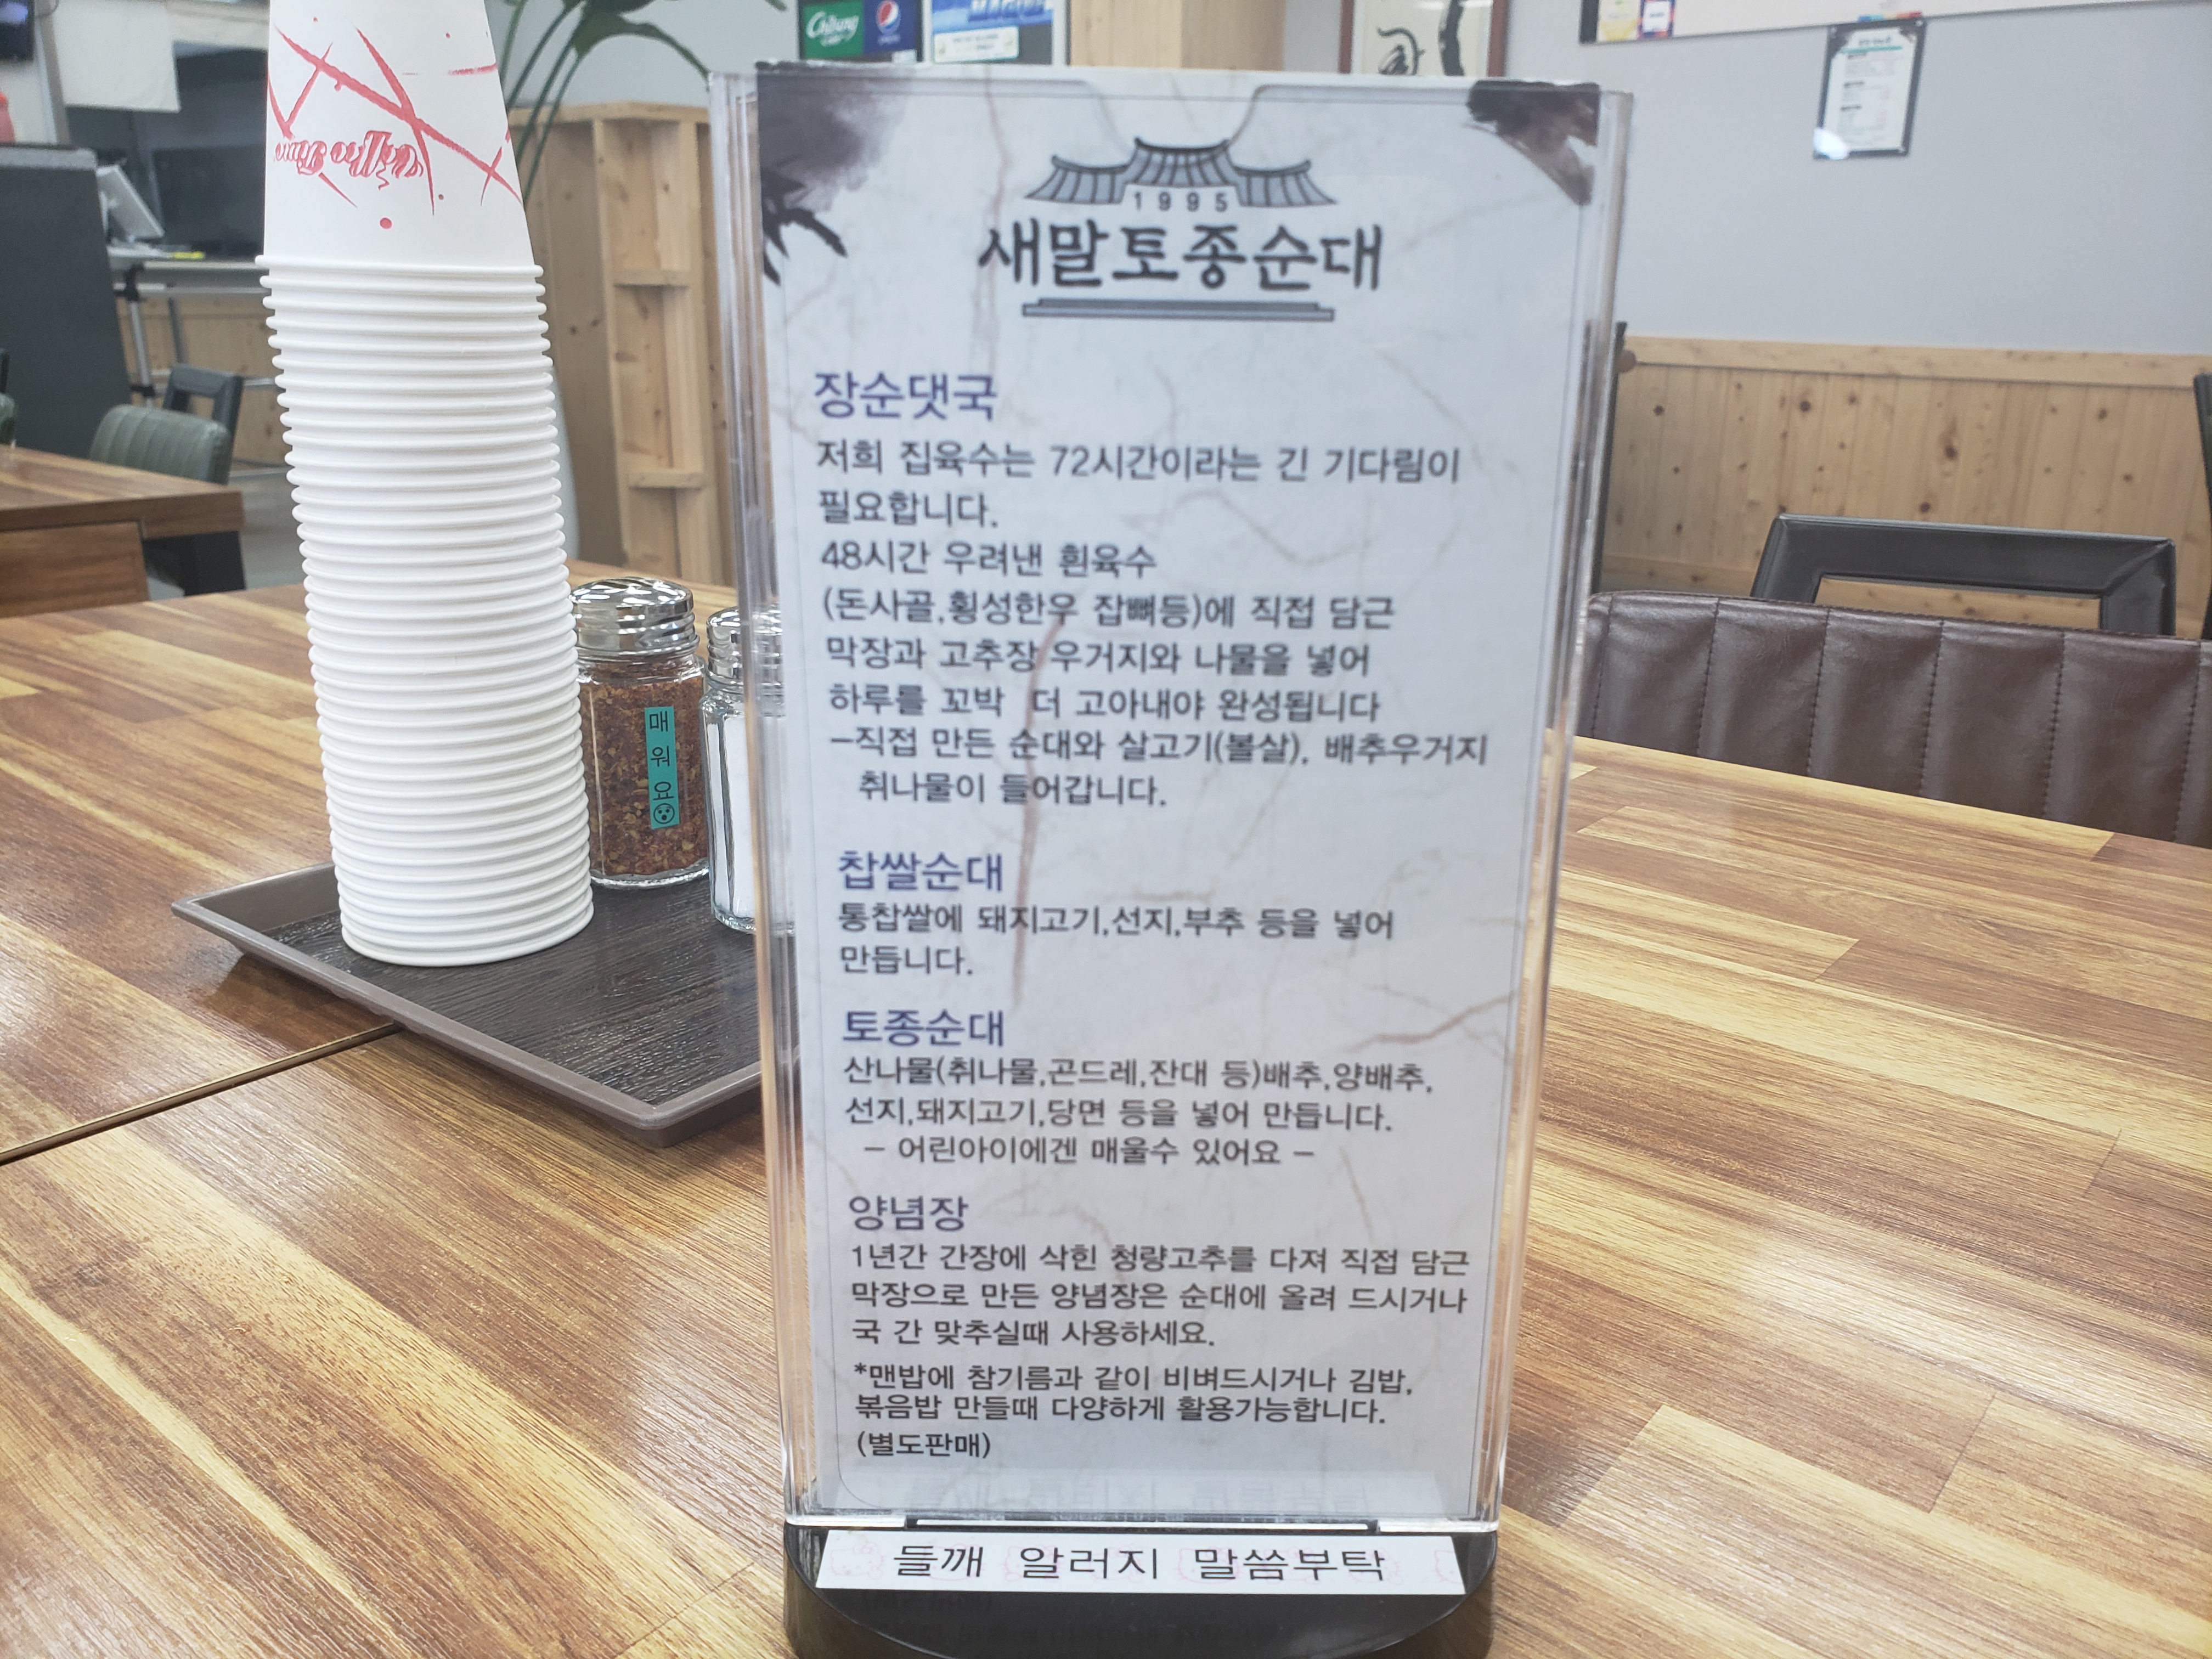 Chilsung
1995
새말토종순대
장순댓국
저희 집육수는 72시간이라는 긴 기다림이
필요합니다.
48시간 우려낸 흰육수
(돈사골,횡성한우 잡뼈등)에 직접 담근
막장과 고추장 우거지와 나물을 넣어
하루를 꼬박 더 고아내야 완성됩니다
-직접 만든 순대와 살고기(볼살), 배추우거지
취나물이 들어갑니다.
찹쌀순대
통찹쌀에 돼지고기,선지,부추 등을 넣어
만듭니다.
토종순대
산나물(취나물,곤드레,잔대 등)배추,양배추,
선지,돼지고기,당면 등을 넣어 만듭니다.
- 어린아이에겐 매울수 있어요 -
양념장
1년간 간장에 삭힌 청량고추를 다져 직접 담근
막장으로 만든 양념장은 순대에 올려 드시거나
국 간 맞추실때 사용하세요.
*맨밥에 참기름과 같이 비벼드시거나 김밥,
볶음밥 만들때 다양하게 활용가능합니다.
(별도판매)
들깨 알러지 말씀부탁
매워요